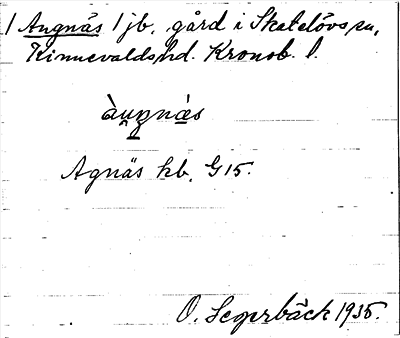 / Augnäs / jb. gård i Skatelövs sn,
Kinnevalds hd. Kronob. l.
Agnäs kb. G 15.
O. Segerbäck 1935.